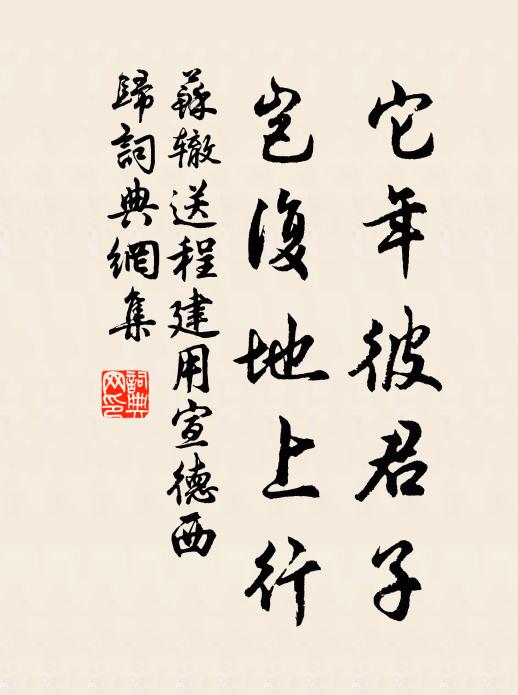 它年彼君子
豈復地上行
蘇辙送程建用宣德西
歸詞典網集
詞典
网印